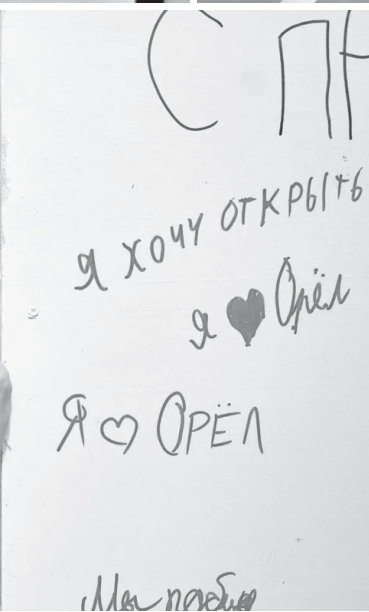 С ПН
Я ХОЧУ ОТКРЫТЬ
Я ♥ Орёл
Я ♡ ОРЁЛ
Мы